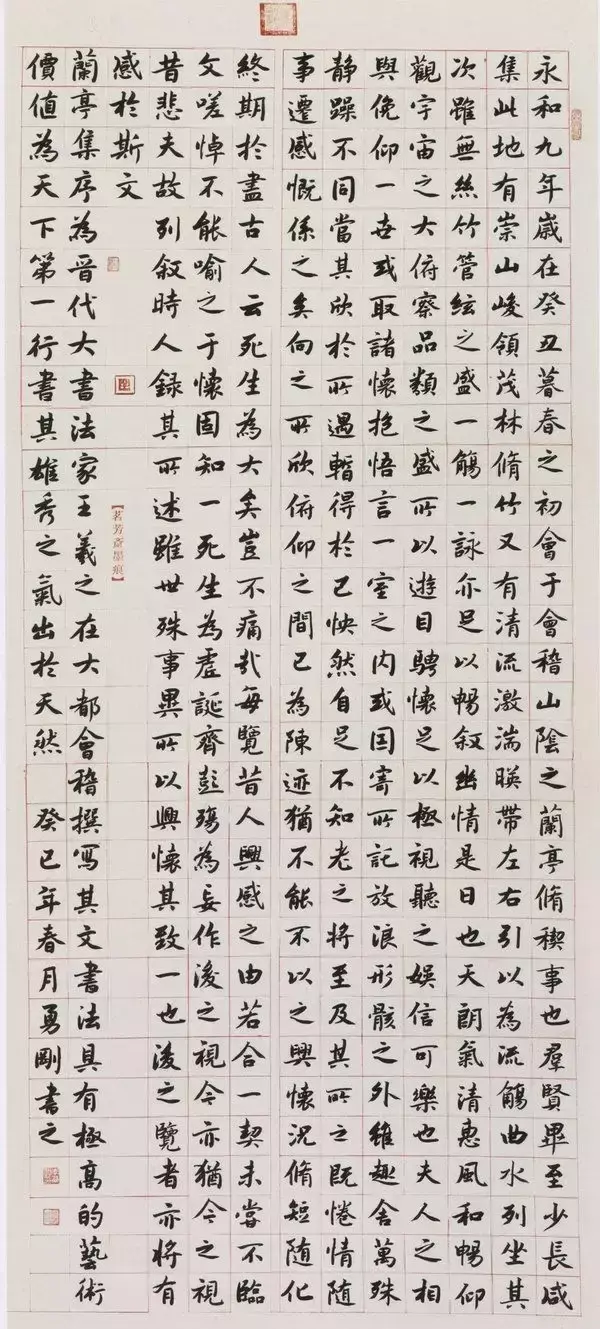 永和九年歲在癸丑暮春之初會于會稽山陰之蘭亭脩稧事也羣賢畢至少長咸
集此地有崇山峻領茂林脩竹又有清流激湍暎帶左右引以為流觴曲水列坐其
次雖無絲竹管絃之盛一觴一詠亦足以暢叙幽情是日也天朗氣清惠風和暢仰
觀宇宙之大俯察品類之盛所以遊目騁懷足以極視聽之娛信可樂也夫人之相
與俛仰一世或取諸懷抱悟言一室之内或因寄所託放浪形骸之外雖趣舍萬殊
静躁不同當其欣於所遇暫得於己怏然自足不知老之將至及其所之既惓情隨
事遷感慨係之矣向之所欣俯仰之間已為陳迹猶不能不以之興懷況脩短隨化
終期於盡古人云死生為大矣豈不痛哉每覽昔人興感之由若合一契未嘗不臨
文嗟悼不能喻之于懷固知一死生為虛誕齊彭殤為妄作後之視今亦猶今之視
昔悲夫故列叙時人錄其所述雖世殊事異所以興懷其致一也後之覽者亦將有
感於斯文
【茗芳齋墨痕】
蘭亭集序為晉代大書法家王羲之在大都會稽撰寫其文書法具有極高的藝術
價值為天下第一行書其雄秀之氣出於天然 癸巳年春月勇剛書之